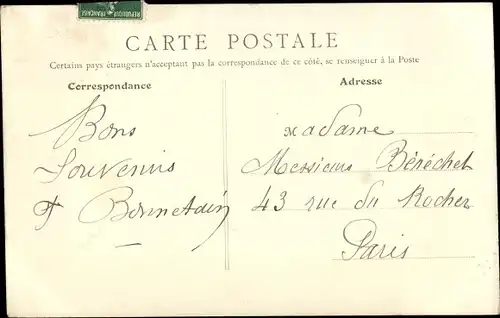 REPUBLIQUE FRANÇAISE
CARTE POSTALE
Certains pays étrangers n'acceptant pas la correspondance de ce côté, se renseigner à la Poste
Correspondance
Bons
Souvenirs
F Bonnetain
Adresse
Madame
Messieurs Béréchet
43 rue du Rocher
Paris